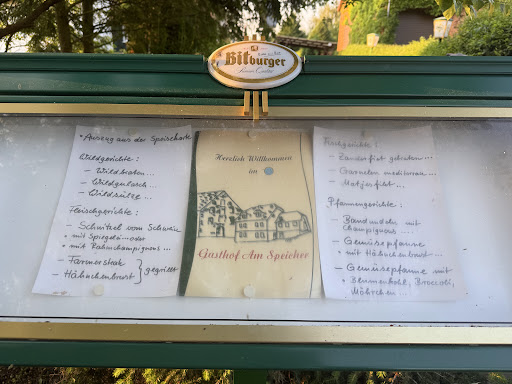 Bitburger
* Auszug aus der Speisekarte
Wildgerichte:
- Wildbraten...
- Wildgulasch...
- Wildsülze...
Fleischgerichte:
- Schnitzel vom Schwein
* mit Spiegelei... oder
* mit Rahmchampignons...
- Farmersteak
- Hähnchenbrust } gegrillt
Herzlich Willkommen
im
Gasthof Am Speicher
Fischgerichte:
- Zanderfilet gebraten...
- Garnelen mediterran...
- Matjesfilet...
Pfannengerichte:
- Bandnudeln mit
Champignons...
- Gemüsepfanne
* mit Hähnchenbrust...
- Gemüsepfanne mit
* Blumenkohl, Broccoli,
Möhrchen...